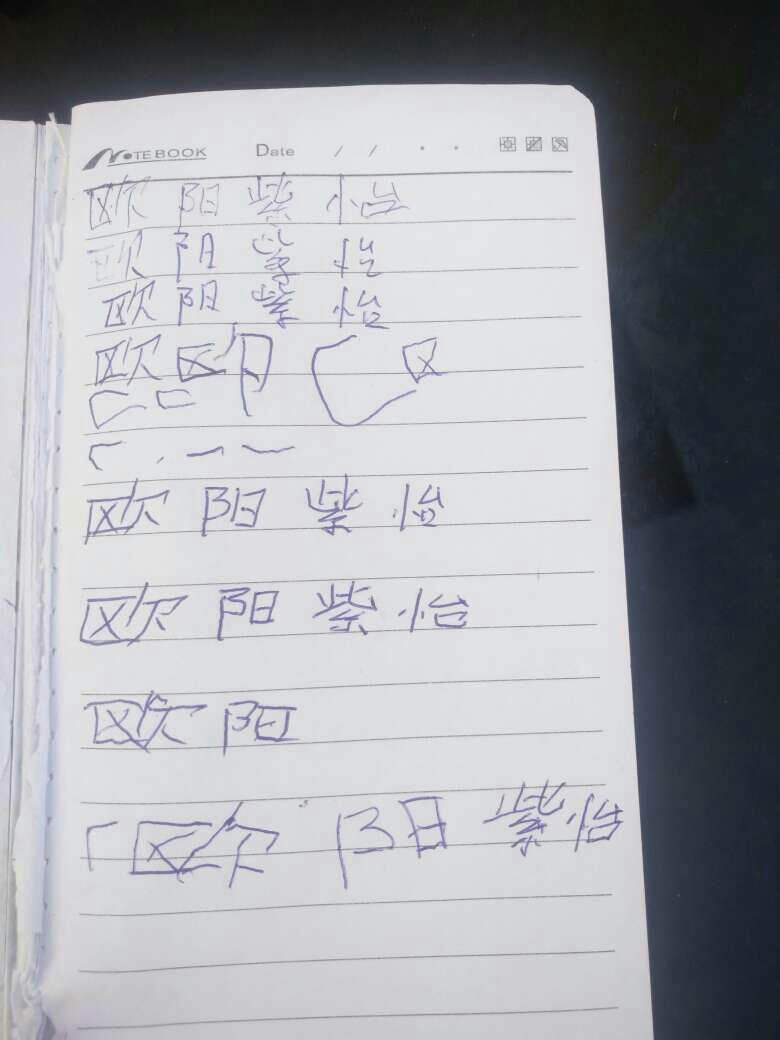 NOTEBOOK Date / / · ·
欧阳紫怡
欧阳紫怡
欧阳紫怡
欧区
欧阳紫怡
欧阳紫怡
欧阳
欧阳紫怡